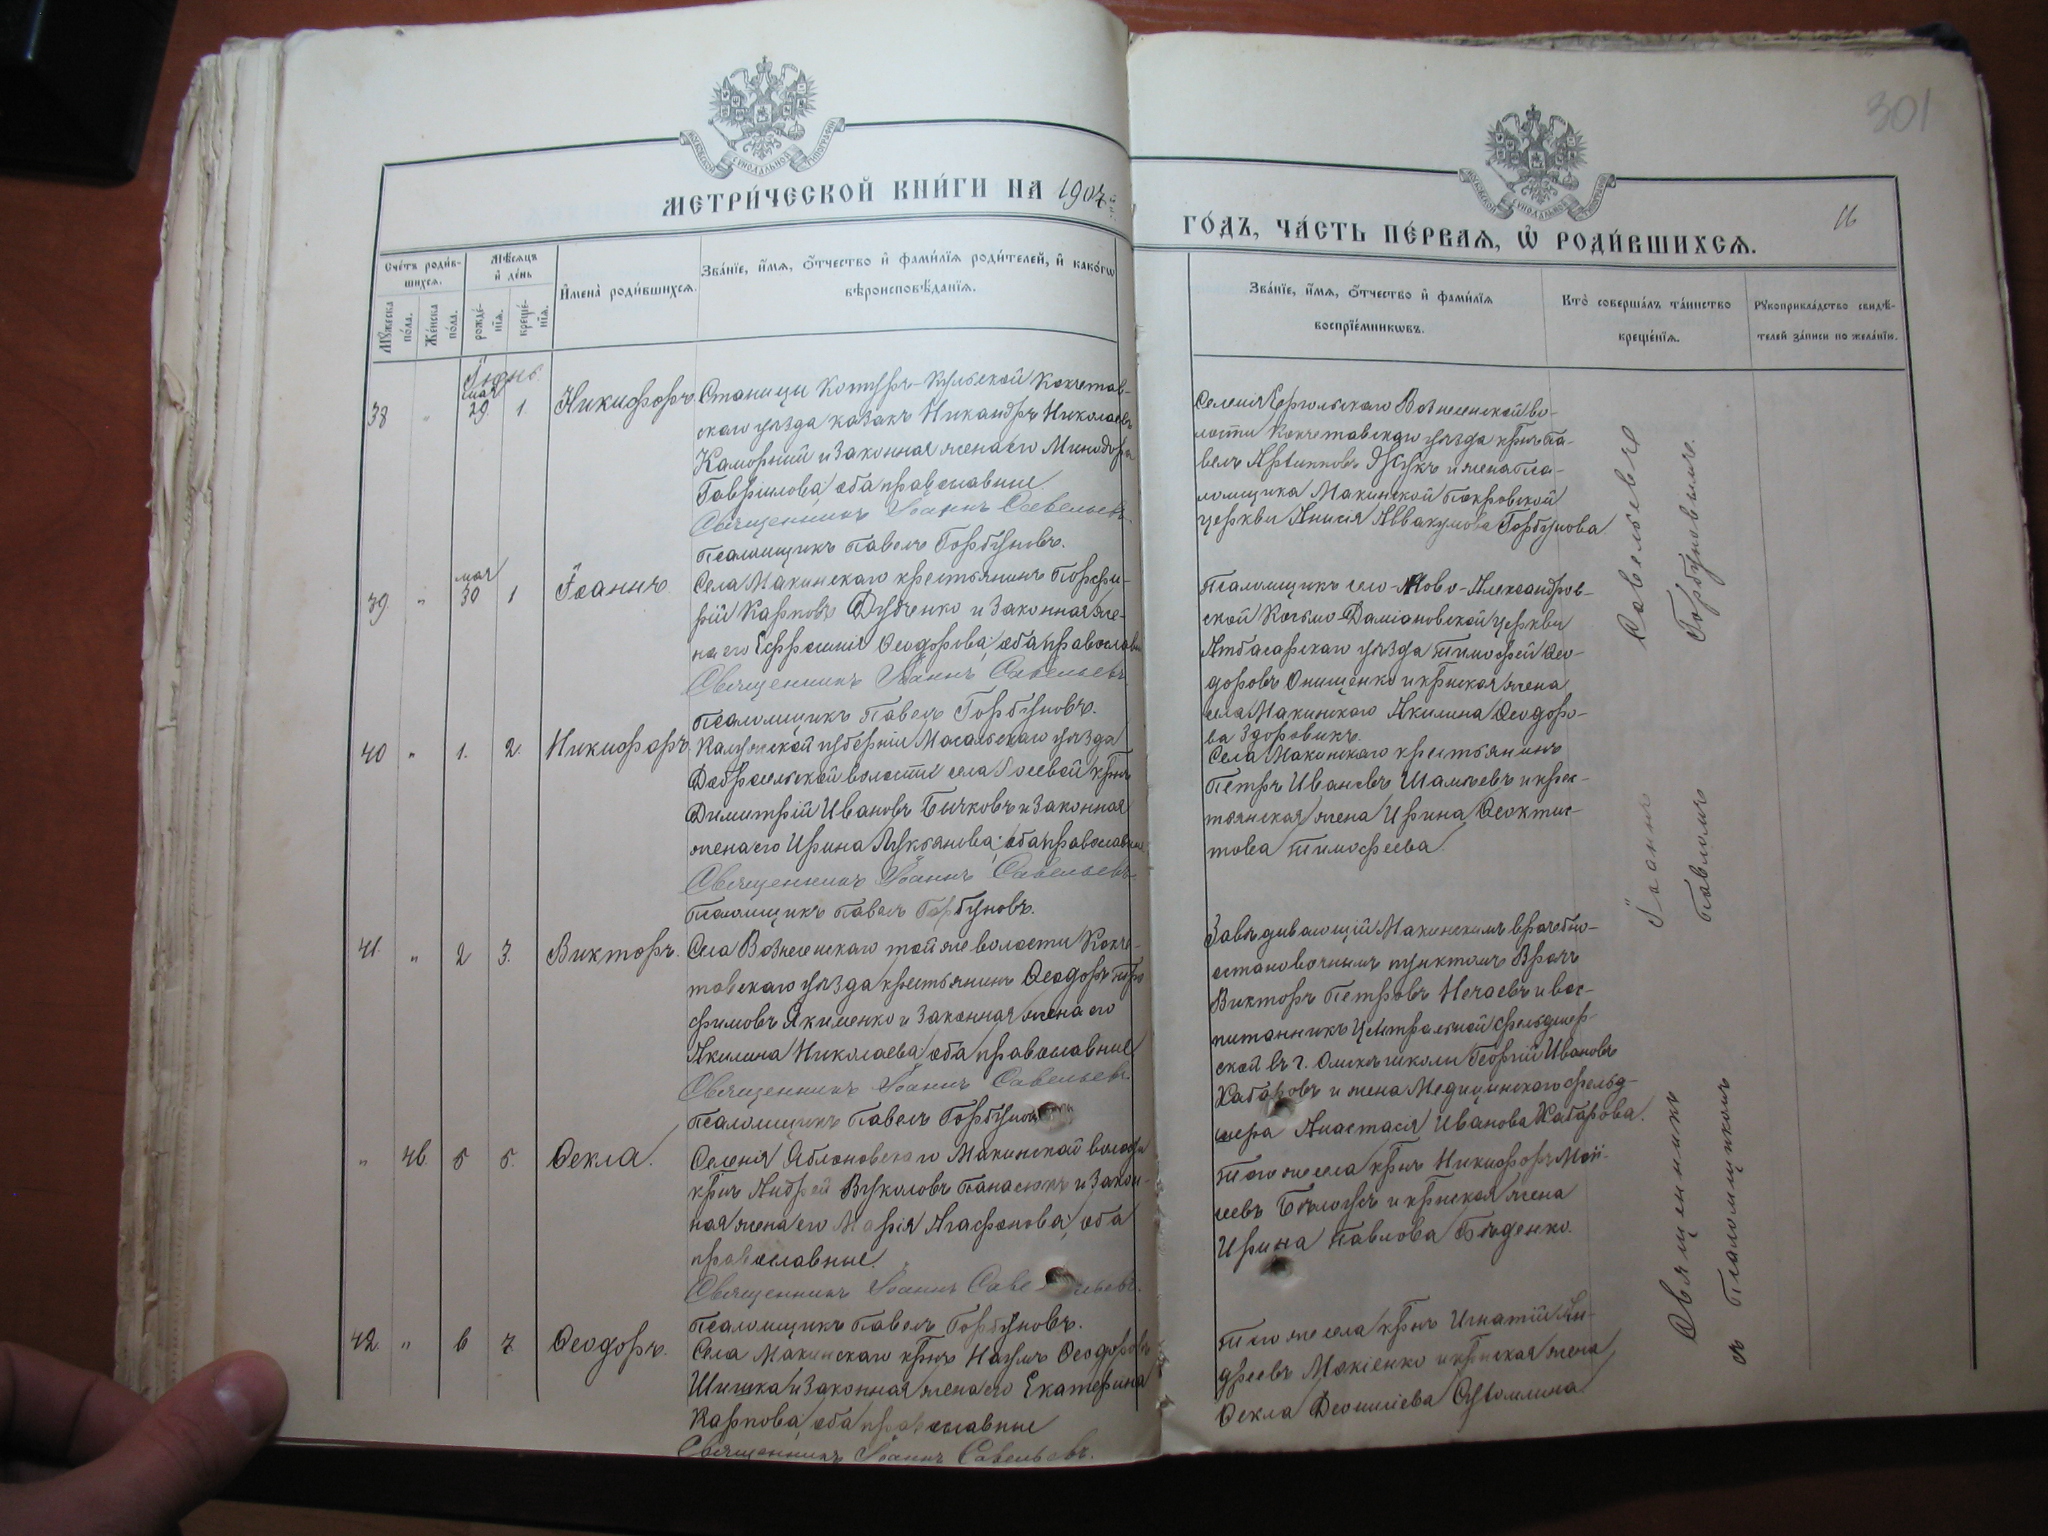 301
МЕТРИ́ЧЕСКОЙ КНИ́ГИ НА 1907й
ГО́ДЪ, ЧА́СТЬ ПЕ́РВАЯ, Ѡ҆ РОДИ́ВШИХСЯ.
16
Сче́тъ роди́в-
шихся.
Мѣ́сяцъ
и҆ де́нь
Мꙋ́жеска по́ла.
Же́нска по́ла.
рожде́-
нїя.
креще́-
нїя.
И҆мена̀ роди́вшихся.
Зва́нїе, и҆́мя, ѻ҆́тчество и҆ фами́лїя роди́телей, и҆ како́гѡ
вѣроисповѣ́данїя.
Зва́нїе, и҆́мя, ѻ҆́тчество и҆ фами́лїя
воспрїе́мникѡвъ.
Кто̀ соверша́лъ та́инство
креще́нїя.
Рꙋкоприкла́дство свидѣ́-
телей за́писи по жела́нїю.
Іюнь
38 " мая 29 1 Никифоръ
Станицы Котуръ-Кульской Кокчетав-
скаго уѣзда казакъ Никандръ Николаевъ
Каморный и законная жена его Минодора
Гавриилова, оба православные
Священникъ Іоаннъ Савельевъ.
Псаломщикъ Павелъ Горбуновъ.
Вознесенской во-
лости Кокчетавскаго уѣзда крнъ Па-
велъ и жена пса-
ломщика Макинской Покровской
церкви Анисія Аввакумова Горбунова
39 " мая 30 1 Іоаннъ
Села Макинскаго крестьянинъ Порфи-
рій Карповъ Дубченко и законная же-
на его Ефросинія Ѳеодорова, оба православн
Священникъ Іоаннъ Савельевъ
Псаломщикъ Павелъ Горбуновъ.
Псаломщикъ село-Ново-Александров-
ской Косьмо-Даміановской церкви
Атбасарскаго уѣзда Тимофей Ѳео-
доровъ Онищенко и крнская жена
села Макинскаго Акилина Ѳеодоро-
ва Здоровикъ.
40 " 1. 2. Никифоръ
Калужской губерніи Масальскаго уѣзда
Добросельской волости села крнъ
Димитрій Ивановъ Бычковъ и законная
жена его Ирина Лукьянова, оба православные
Священникъ Іоаннъ Савельевъ
Псаломщикъ Павелъ Горбуновъ.
Села Макинскаго крестьянинъ
Петръ Ивановъ Шамаевъ и крес-
тьянская жена Ирина Ѳеоктис-
това Тимофеева.
41. " 2 3. Викторъ.
Села Вознесенскаго той же волости Кокче-
тавскаго уѣзда крестьянинъ Ѳеодоръ Тро
фимовъ Якименко и законная жена его
Акилина Николаева, оба православные
Священникъ Іоаннъ Савельевъ
Псаломщикъ Павелъ Горбуновъ
Завѣдывающій Макинскимъ врачебно-
остановочнымъ пунктомъ Врачъ
Викторъ Петровъ Нечаевъ и вос-
питанникъ Центральной фельдшер-
ской въ г. Омскѣ школы Георгій Ивановъ
Хабаровъ и жена Медицинскаго фельд-
шера Анастасія Иванова Хабарова.
" 46 5 5. Ѳекла.
Селенія Яблоновскаго Макинской волости
крнъ Андрей Вуколовъ Панасюкъ и закон-
ная жена его Марія Агафонова, оба
православные.
Священникъ Іоаннъ Савельевъ.
Псаломщикъ Павелъ Горбуновъ.
Того же села крнъ Никифоръ Мои-
сеевъ Бѣлоусъ и крнская жена
Ирина Павлова Бѣденко.
42 " 6 7 Ѳеодоръ.
Села Макинскаго крнъ Наумъ Ѳеодоровъ
Шишка и законная жена его Екатерина
Карпова, оба православные
Священникъ Іоаннъ Савельевъ.
Того же села крнъ Игнатій Ан-
дреевъ Макіенко и крнская жена
Ѳекла Сутомлина
Священникъ Іоаннъ Савельевъ
съ Псаломщикомъ Павломъ Горбуновымъ.